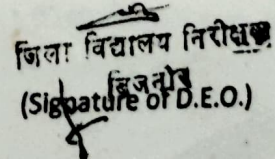 जिला विद्यालय निरीक्षक
बिजनौर
(Signature of D.E.O.)